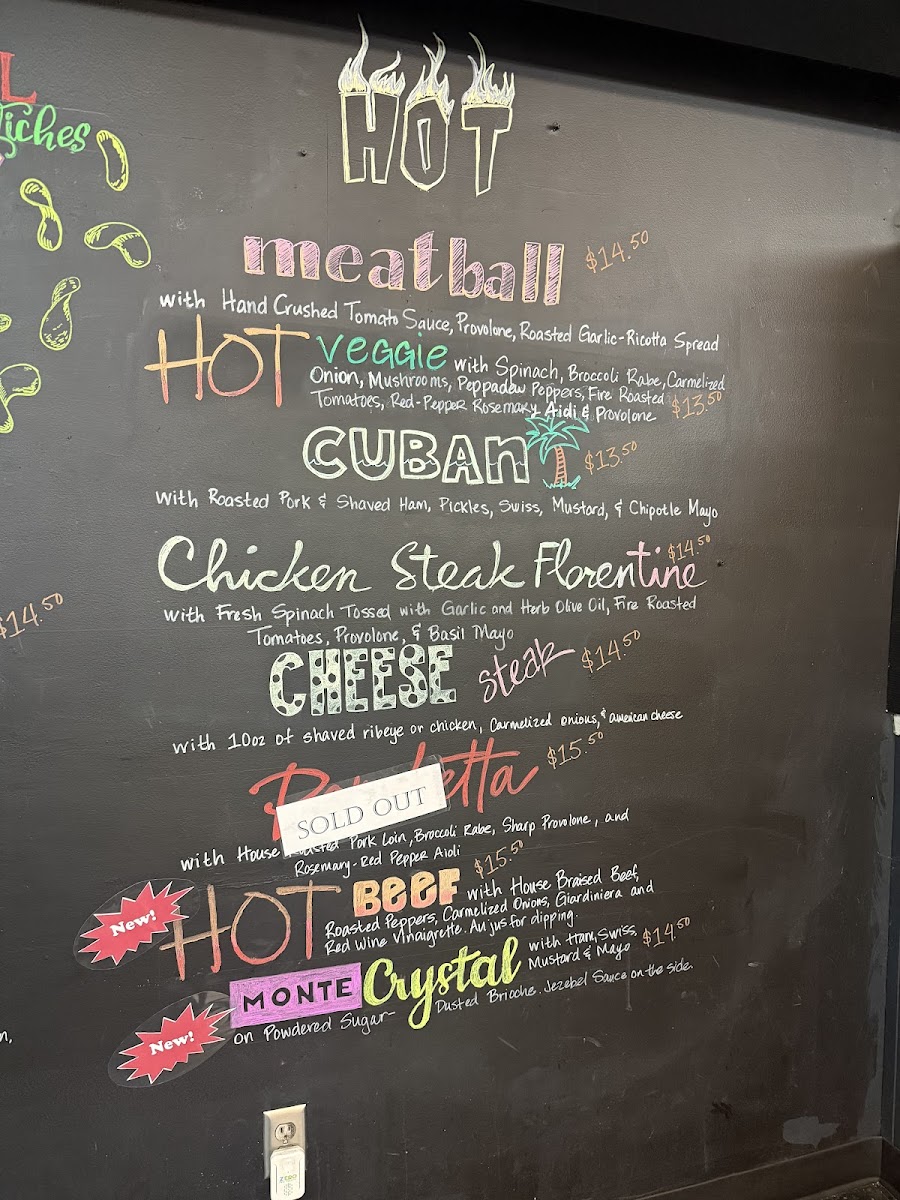 L
iches
HOT
meatball $14.50
with Hand Crushed Tomato Sauce, Provolone, Roasted Garlic-Ricotta Spread
HOT veggie with Spinach, Broccoli Rabe, Carmelized
Onion, Mushrooms, Peppadew Peppers, Fire Roasted
Tomatoes, Red-Pepper Rosemary Aidi & Provolone $13.50
CUBAN $13.50
with Roasted Pork & Shaved Ham, Pickles, Swiss, Mustard, & Chipotle Mayo
Chicken Steak Florentine $14.50
with Fresh Spinach Tossed with Garlic and Herb Olive Oil, Fire Roasted
Tomatoes, Provolone, & Basil Mayo
$14.50
CHEESE steak $14.50
with 10oz of shaved ribeye or chicken, Carmelized onions, & american cheese
$15.50
SOLD OUT
with House Pork Loin, Broccoli Rabe, Sharp Provolone, and
Rosemary-Red Pepper Aioli
New!
HOT BEEF $15.50 with House Braised Beef,
Roasted Peppers, Carmelized Onions, Giardiniera and
Red Wine Vinaigrette. Au jus for dipping.
New!
MONTE Crystal with Ham, Swiss, $14.50
Mustard & Mayo
on Powdered Sugar- Dusted Brioche. Jezebel Sauce on the side.